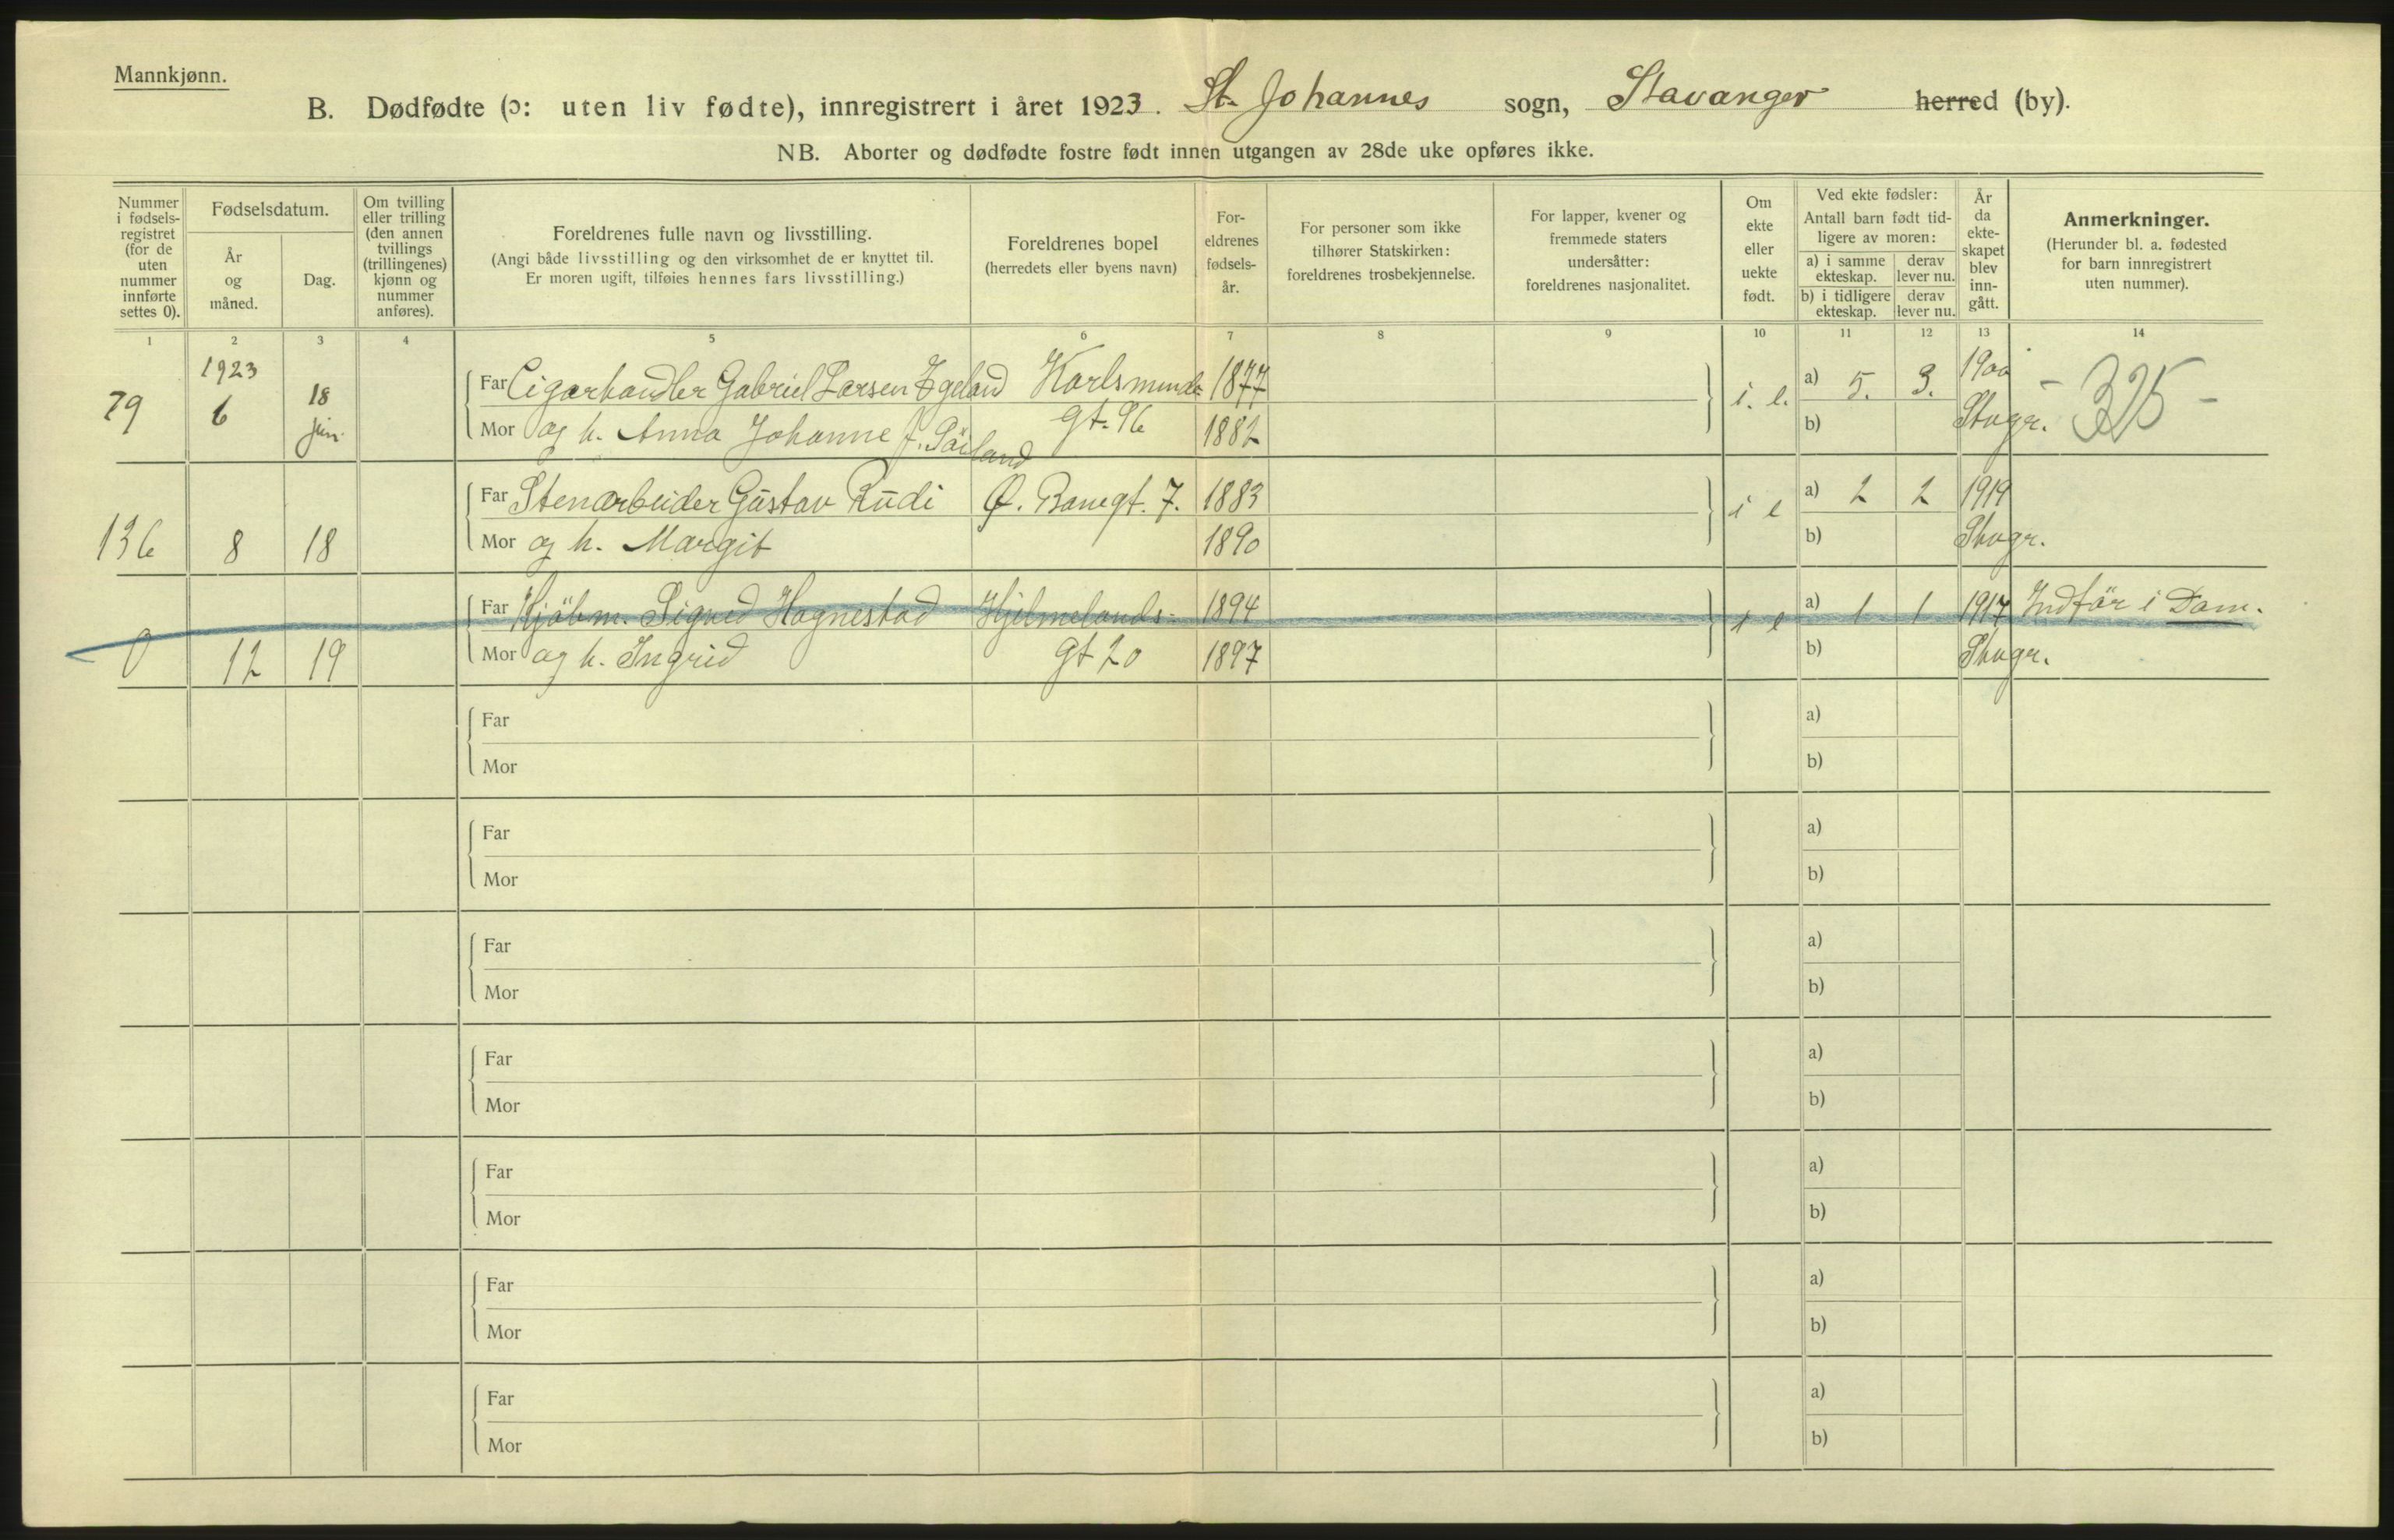 Mannkjønn.
B. Dødfødte (ɔ: uten liv fødte), innregistrert i året 1923. St. Johannes sogn, Stavanger herred (by).
NB. Aborter og dødfødte fostre født innen utgangen av 28de uke opføres ikke.
Nummer
i fødsels-
registret
(for de
uten
nummer
innførte
settes 0).
Fødselsdatum.
År
og
måned.
Dag.
Om tvilling
eller trilling
(den annen
tvillings
(trillingenes)
kjønn og
nummer
anføres).
Foreldrenes fulle navn og livsstilling.
(Angi både livsstilling og den virksomhet de er knyttet til.
Er moren ugift, tilføies hennes fars livsstilling.)
Foreldrenes bopel
(herredets eller byens navn)
For-
eldrenes
fødsels-
år.
For personer som ikke
tilhører Statskirken:
foreldrenes trosbekjennelse.
For lapper, kvener og
fremmede staters
undersåtter:
foreldrenes nasjonalitet.
Om
ekte
eller
uekte
født.
Ved ekte fødsler:
Antall barn født tid-
ligere av moren:
a) i samme
ekteskap.
derav
lever nu.
b) i tidligere
ekteskap.
derav
lever nu.
År
da
ekte-
skapet
blev
inn-
gått.
Anmerkninger.
(Herunder bl. a. fødested
for barn innregistrert
uten nummer).
1 2 3 4 5 6 7 8 9 10 11 12 13 14
79 1923 6 18 jun.
Far Cigarhandler Gabriel Larsen Egeland Karlsminde- 1877 i. e. a) 5. 3. 1900 - 325 -
Mor og h. Anna Johanne f. gt. 96 1882 b) Stvgr.
136 8 18
Far Stenarbeider Gustav Rudi Ø. Banegt. 7. 1883 i e a) 2 2 1919
Mor og h. Margit 1890 b) Stvgr.
0 12 19
Far Kjöbm. Sigved Hognestad Hjelmelands- 1894 i e a) 1 1 1917 Indför i Dom.
Mor og h. Ingrid gt 20 1897 b) Stvgr.
Far a)
Mor b)
Far a)
Mor b)
Far a)
Mor b)
Far a)
Mor b)
Far a)
Mor b)
Far a)
Mor b)
Far a)
Mor b)